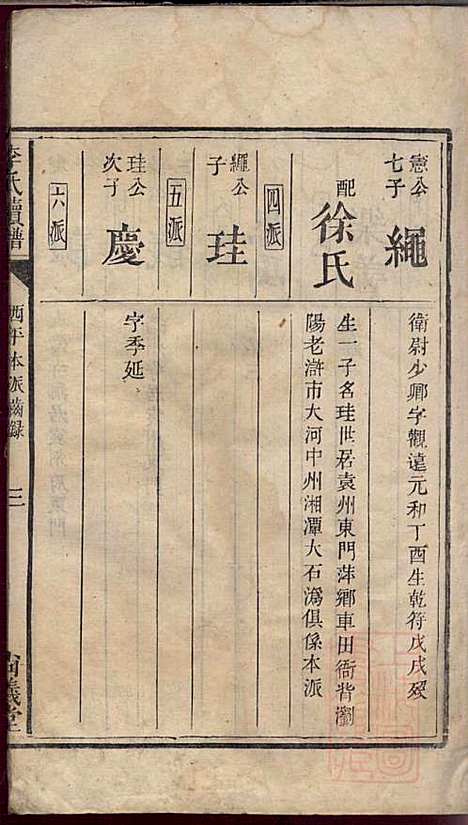 憲公七子
繩
衛尉少卿字觀遠元和丁酉生乾符戊戌歿
配
徐氏
生一子名珪世居袁州東門萍鄉車田衙背瀏
陽老滸市大河中州湘潭大石溈俱係本派
四派
繩公子
珪
五派
珪公次子
慶
字季延
六派
李氏續譜
西平本派齒錄
三
尚義堂